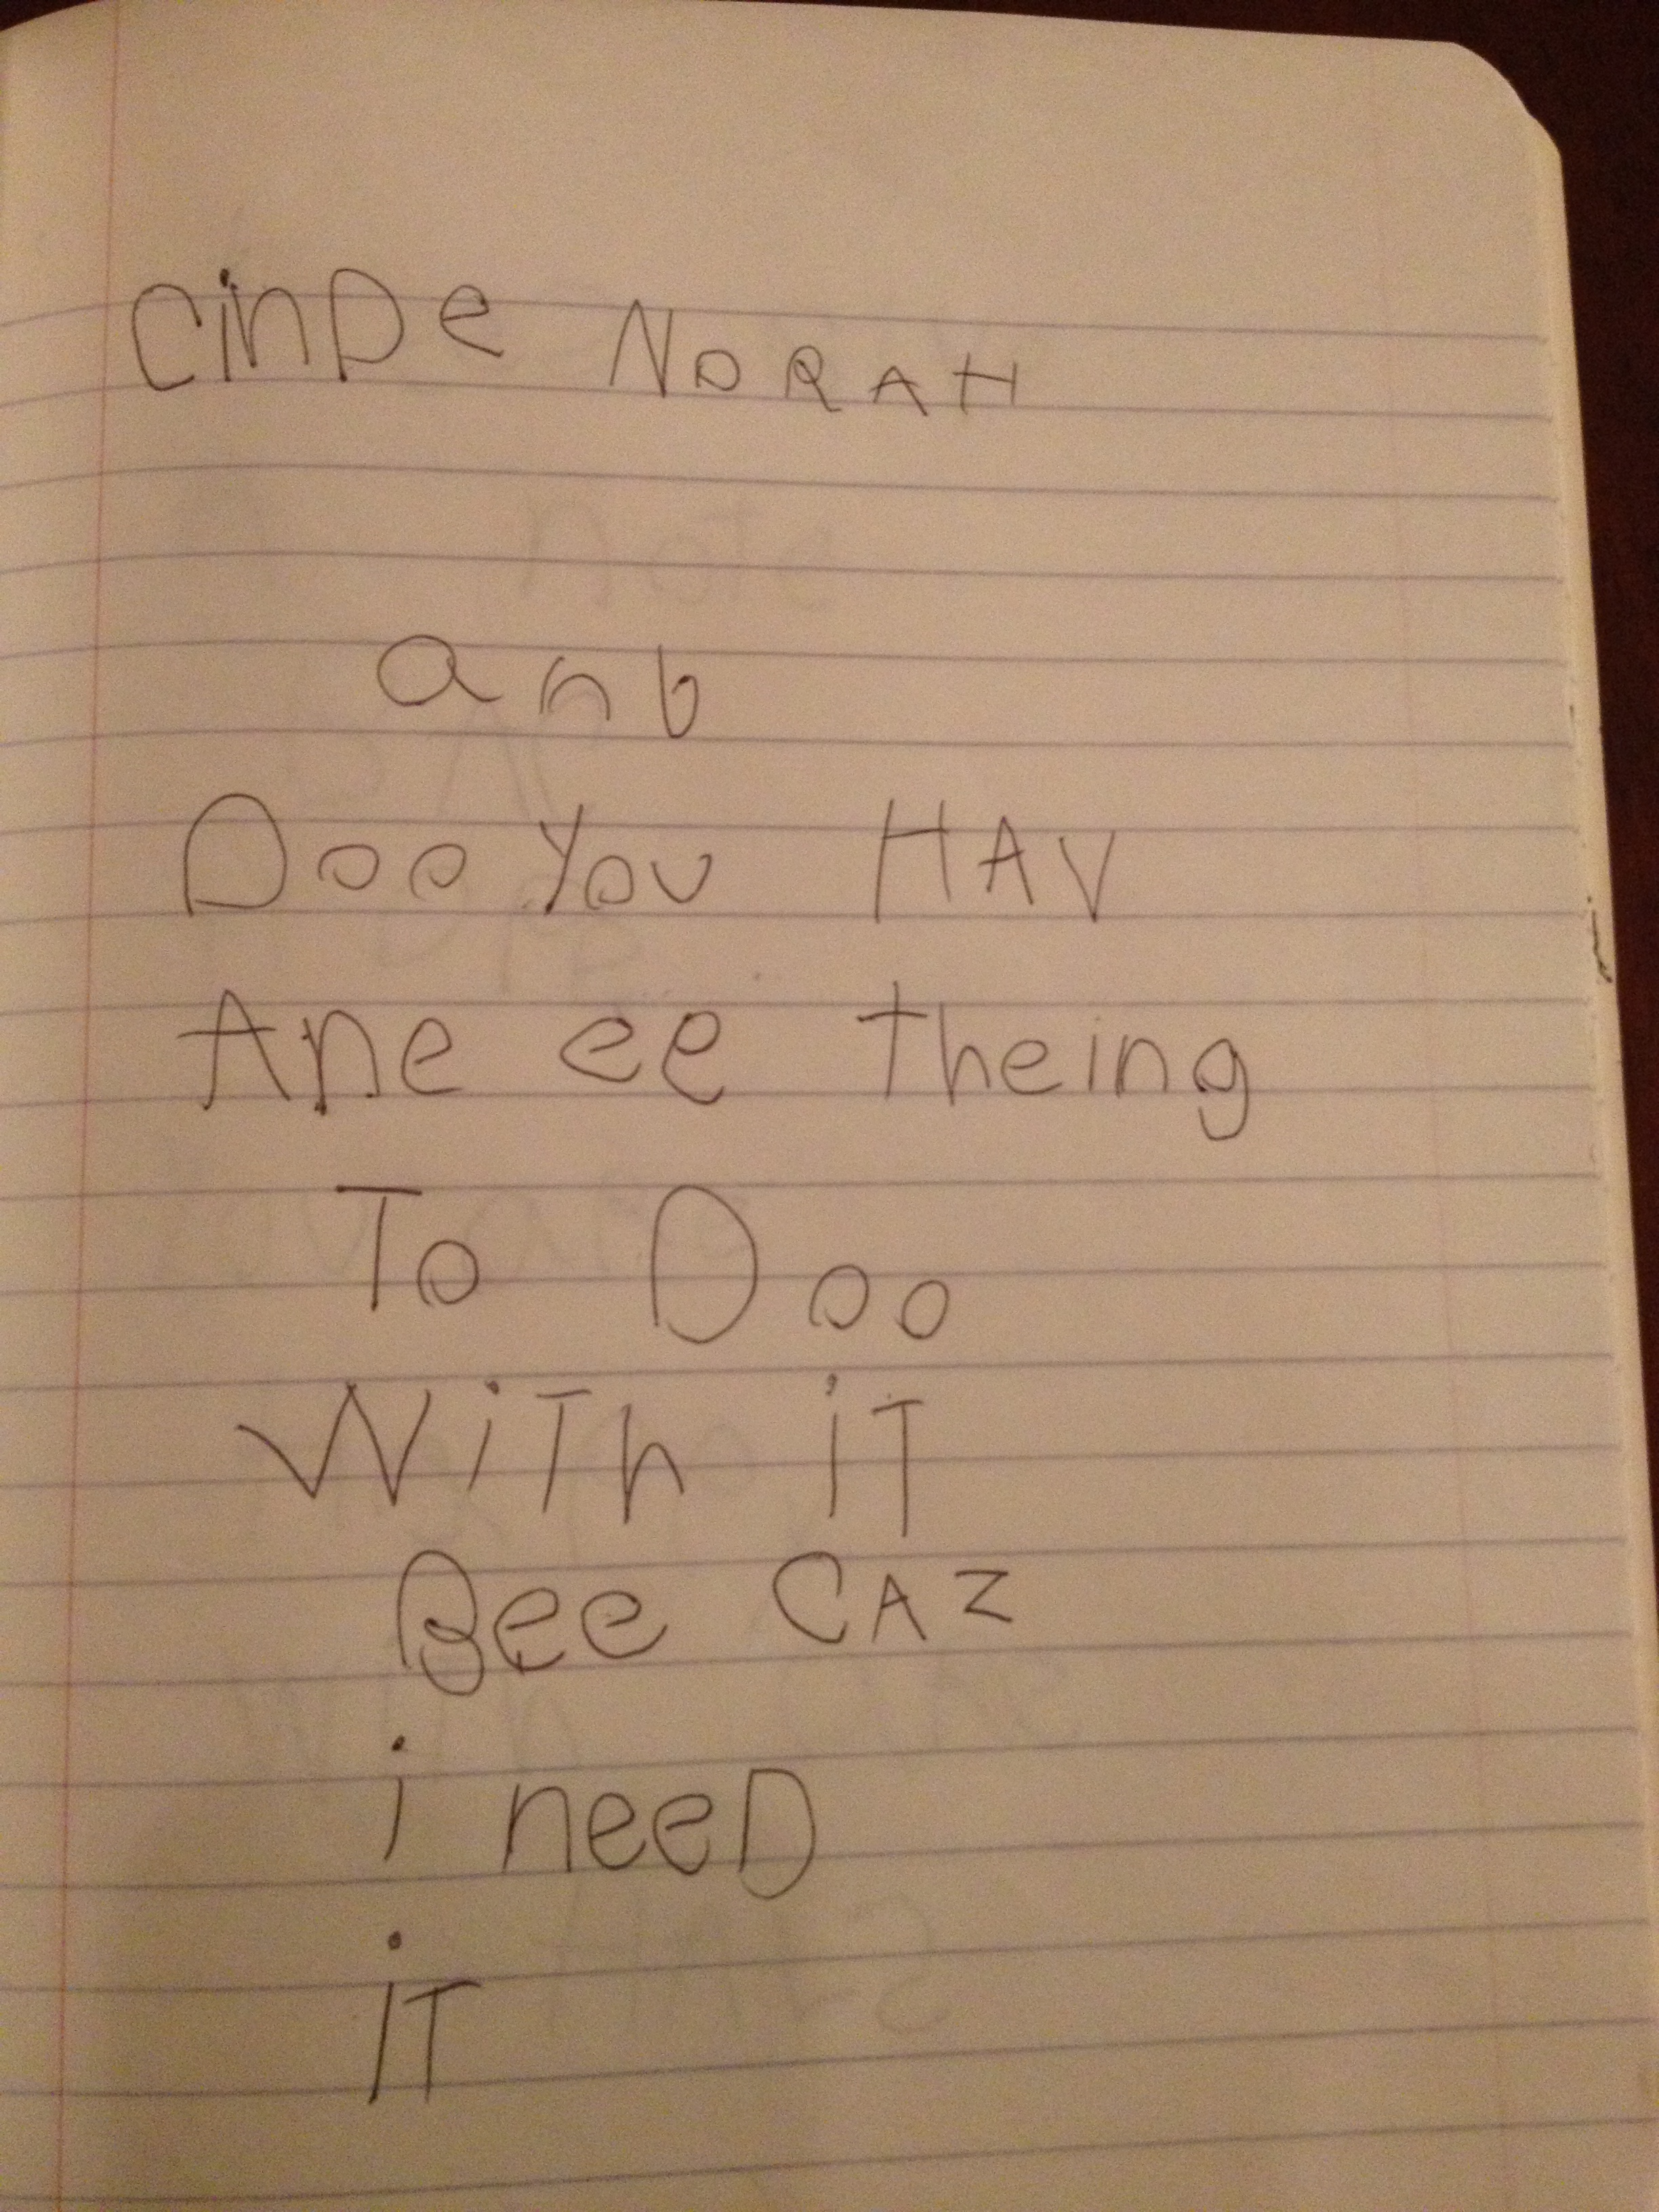 cinDe NORAH
anb
Doo You HAV
Ane ee theing
To Doo
WiTh iT
Bee CAZ
i neeD
iT